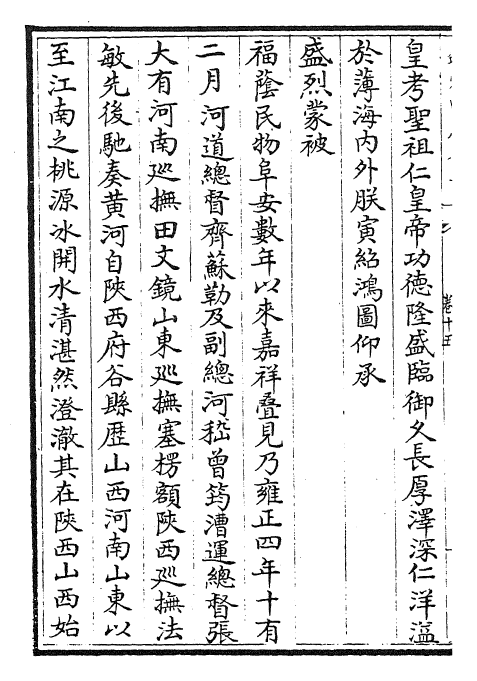 皇考聖祖仁皇帝功德隆盛臨御久長厚澤深仁洋溢
於薄海內外朕寅紹鴻圖仰承
盛烈蒙被
福蔭民物阜安數年以來嘉祥疊見乃雍正四年十有
二月河道總督齊蘇勒及副總河嵇曾筠漕運總督張
大有河南廵撫田文鏡山東廵撫塞楞額陝西廵撫法
敏先後馳奏黃河自陝西府谷縣歴山西河南山東以
至江南之桃源冰開水清湛然澄澈其在陝西山西始
卷十五